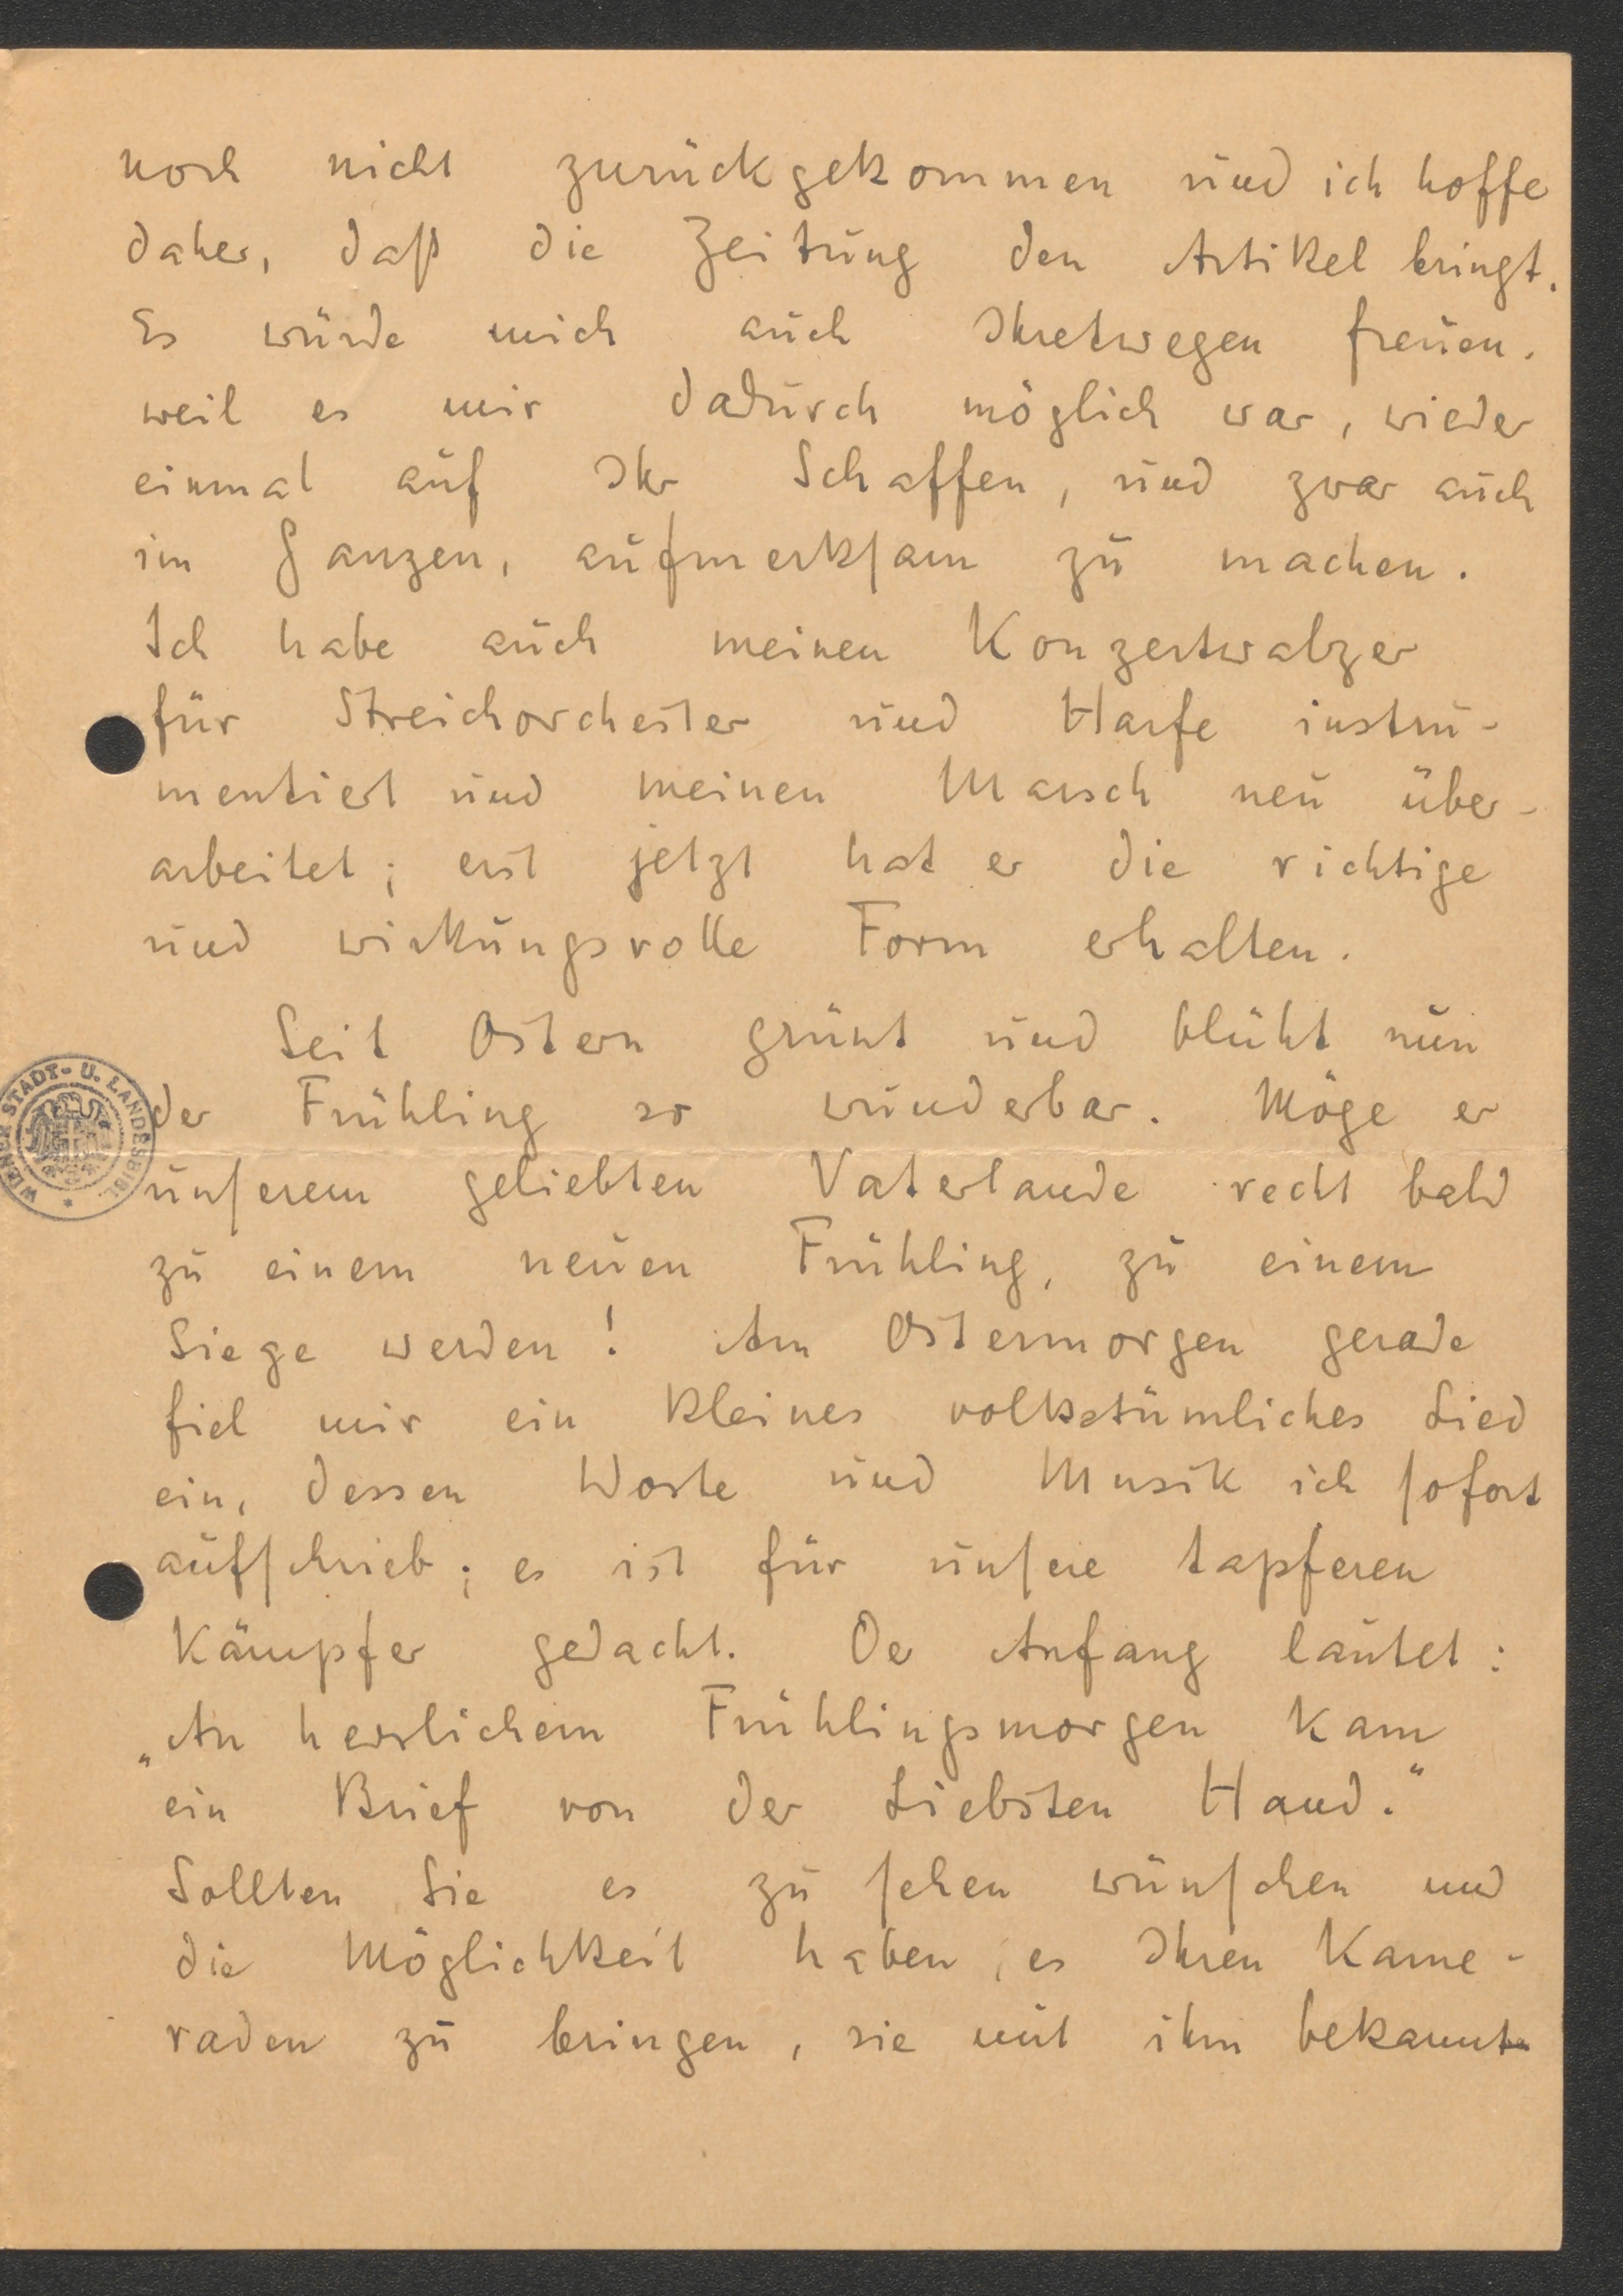 noch nicht zurückgekommen und ich hoffe
daher, daß die Zeitung den Artikel bringt.
Es würde mich auch Ihretwegen freuen.
weil es mir dadurch möglich war, wieder
einmal auf Ihr Schaffen, und zwar auch
im Ganzen, aufmerksam zu machen.
Ich habe auch meinen Konzertwalzer
für Streichorchester und Harfe instru-
mentiert und meinen Marsch neu über-
arbeitet; erst jetzt hat er die richtige
und wirkungsvolle Form erhalten.
Seit Ostern grünt und blüht nun
der Frühling so wunderbar. Möge er
WIENER STADT- U. LANDESBIBL.
unserem geliebten Vaterlande recht bald
zu einem neuen Frühling, zu einem
Siege werden! Am Ostermorgen gerade
fiel mir ein kleines volkstümliches Lied
ein, dessen Worte und Musik ich sofort
aufschrieb; es ist für unsere tapferen
Kämpfer gedacht. Der Anfang lautet:
„An herrlichem Frühlingsmorgen kam
ein Brief von der Liebsten Hand.“
Sollten Sie es zu sehen wünschen und
die Möglichkeit haben, es Ihren Kame-
raden zu bringen, sie mit ihm bekannt